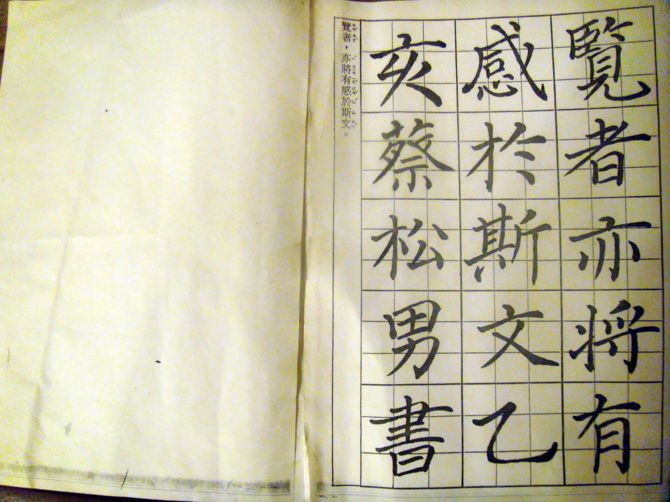 覽者亦將有
感於斯文乙
亥蔡松男書
覽者，亦將有感於斯文。